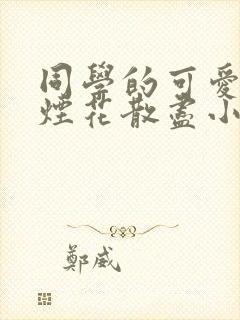 同學的可愛
煙花散盡小
鄭威